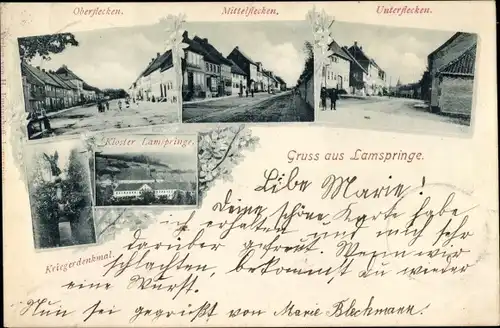 Oberflecken.
Mittelflecken.
Unterflecken.
Kloster Lamspringe.
Gruss aus Lamspringe.
Kriegerdenkmal.
Libe Marie!
Deine schöne Karte habe
ich erhalten und mich sehr
darüber gefreut. Wenn wir
schlachten, bekommst du wieder
eine Wurst.
Nun sei gegrüßt von Marie Blechmann.